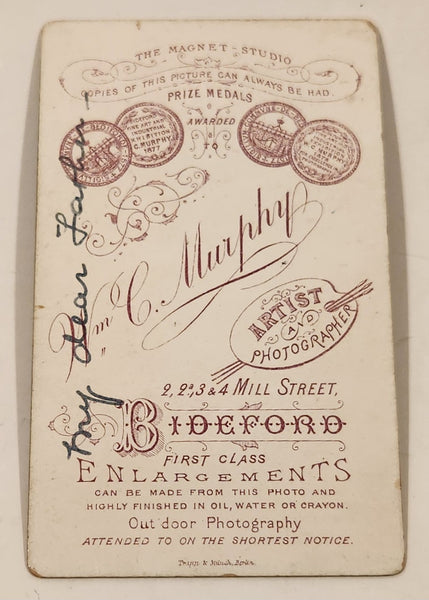 THE MAGNET-STUDIO
COPIES OF THIS PICTURE CAN ALWAYS BE HAD.
PRIZE MEDALS
AWARDED
TO
FINE ART AND
INDUSTRIAL
EXHIBITION
C. MURPHY
1877
Wm C. Murphy
ARTIST
AND
PHOTOGRAPHER
2, 2a, 3 & 4 MILL STREET,
BIDEFORD
FIRST CLASS
ENLARGEMENTS
CAN BE MADE FROM THIS PHOTO AND
HIGHLY FINISHED IN OIL, WATER OR CRAYON.
Out door Photography
ATTENDED TO ON THE SHORTEST NOTICE.
Trapp & Münch, Berlin.
My dear Father-